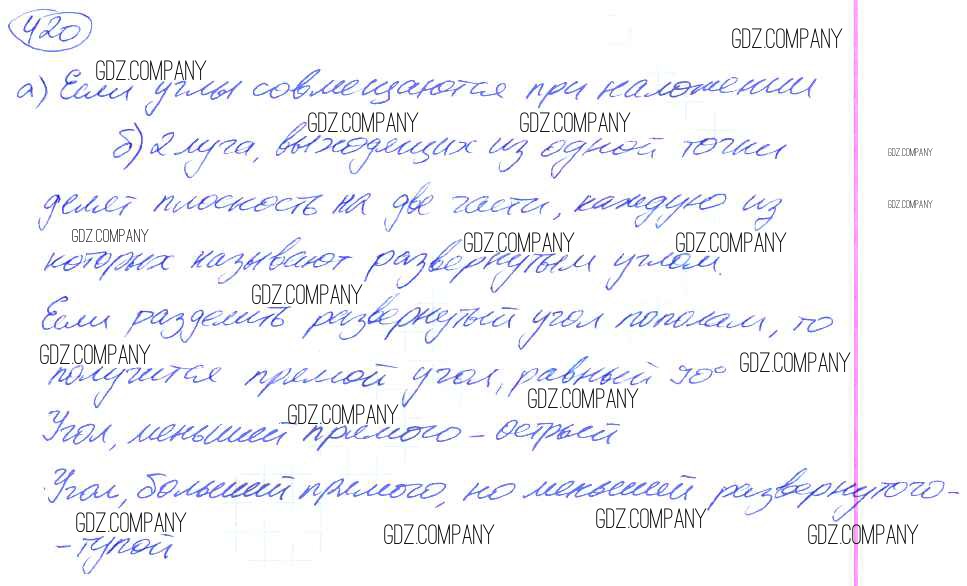 420
GDZ.COMPANY
GDZ.COMPANY
а) Если углы совмещаются при наложении
GDZ.COMPANY GDZ.COMPANY
б) 2 луга, выходещих из одной точки
GDZ.COMPANY
делят плоскость на две части, каждую из
GDZ.COMPANY
GDZ.COMPANY GDZ.COMPANY GDZ.COMPANY
которых называют развернутым углом.
GDZ.COMPANY
Если разделить развернутый угол пополам, то
GDZ.COMPANY GDZ.COMPANY
получится прямой угол, равный 90°
GDZ.COMPANY
GDZ.COMPANY
Угол, меньший прямого - острый
Угол, больший прямого, но меньший развернутого -
GDZ.COMPANY GDZ.COMPANY
GDZ.COMPANY GDZ.COMPANY
- тупой